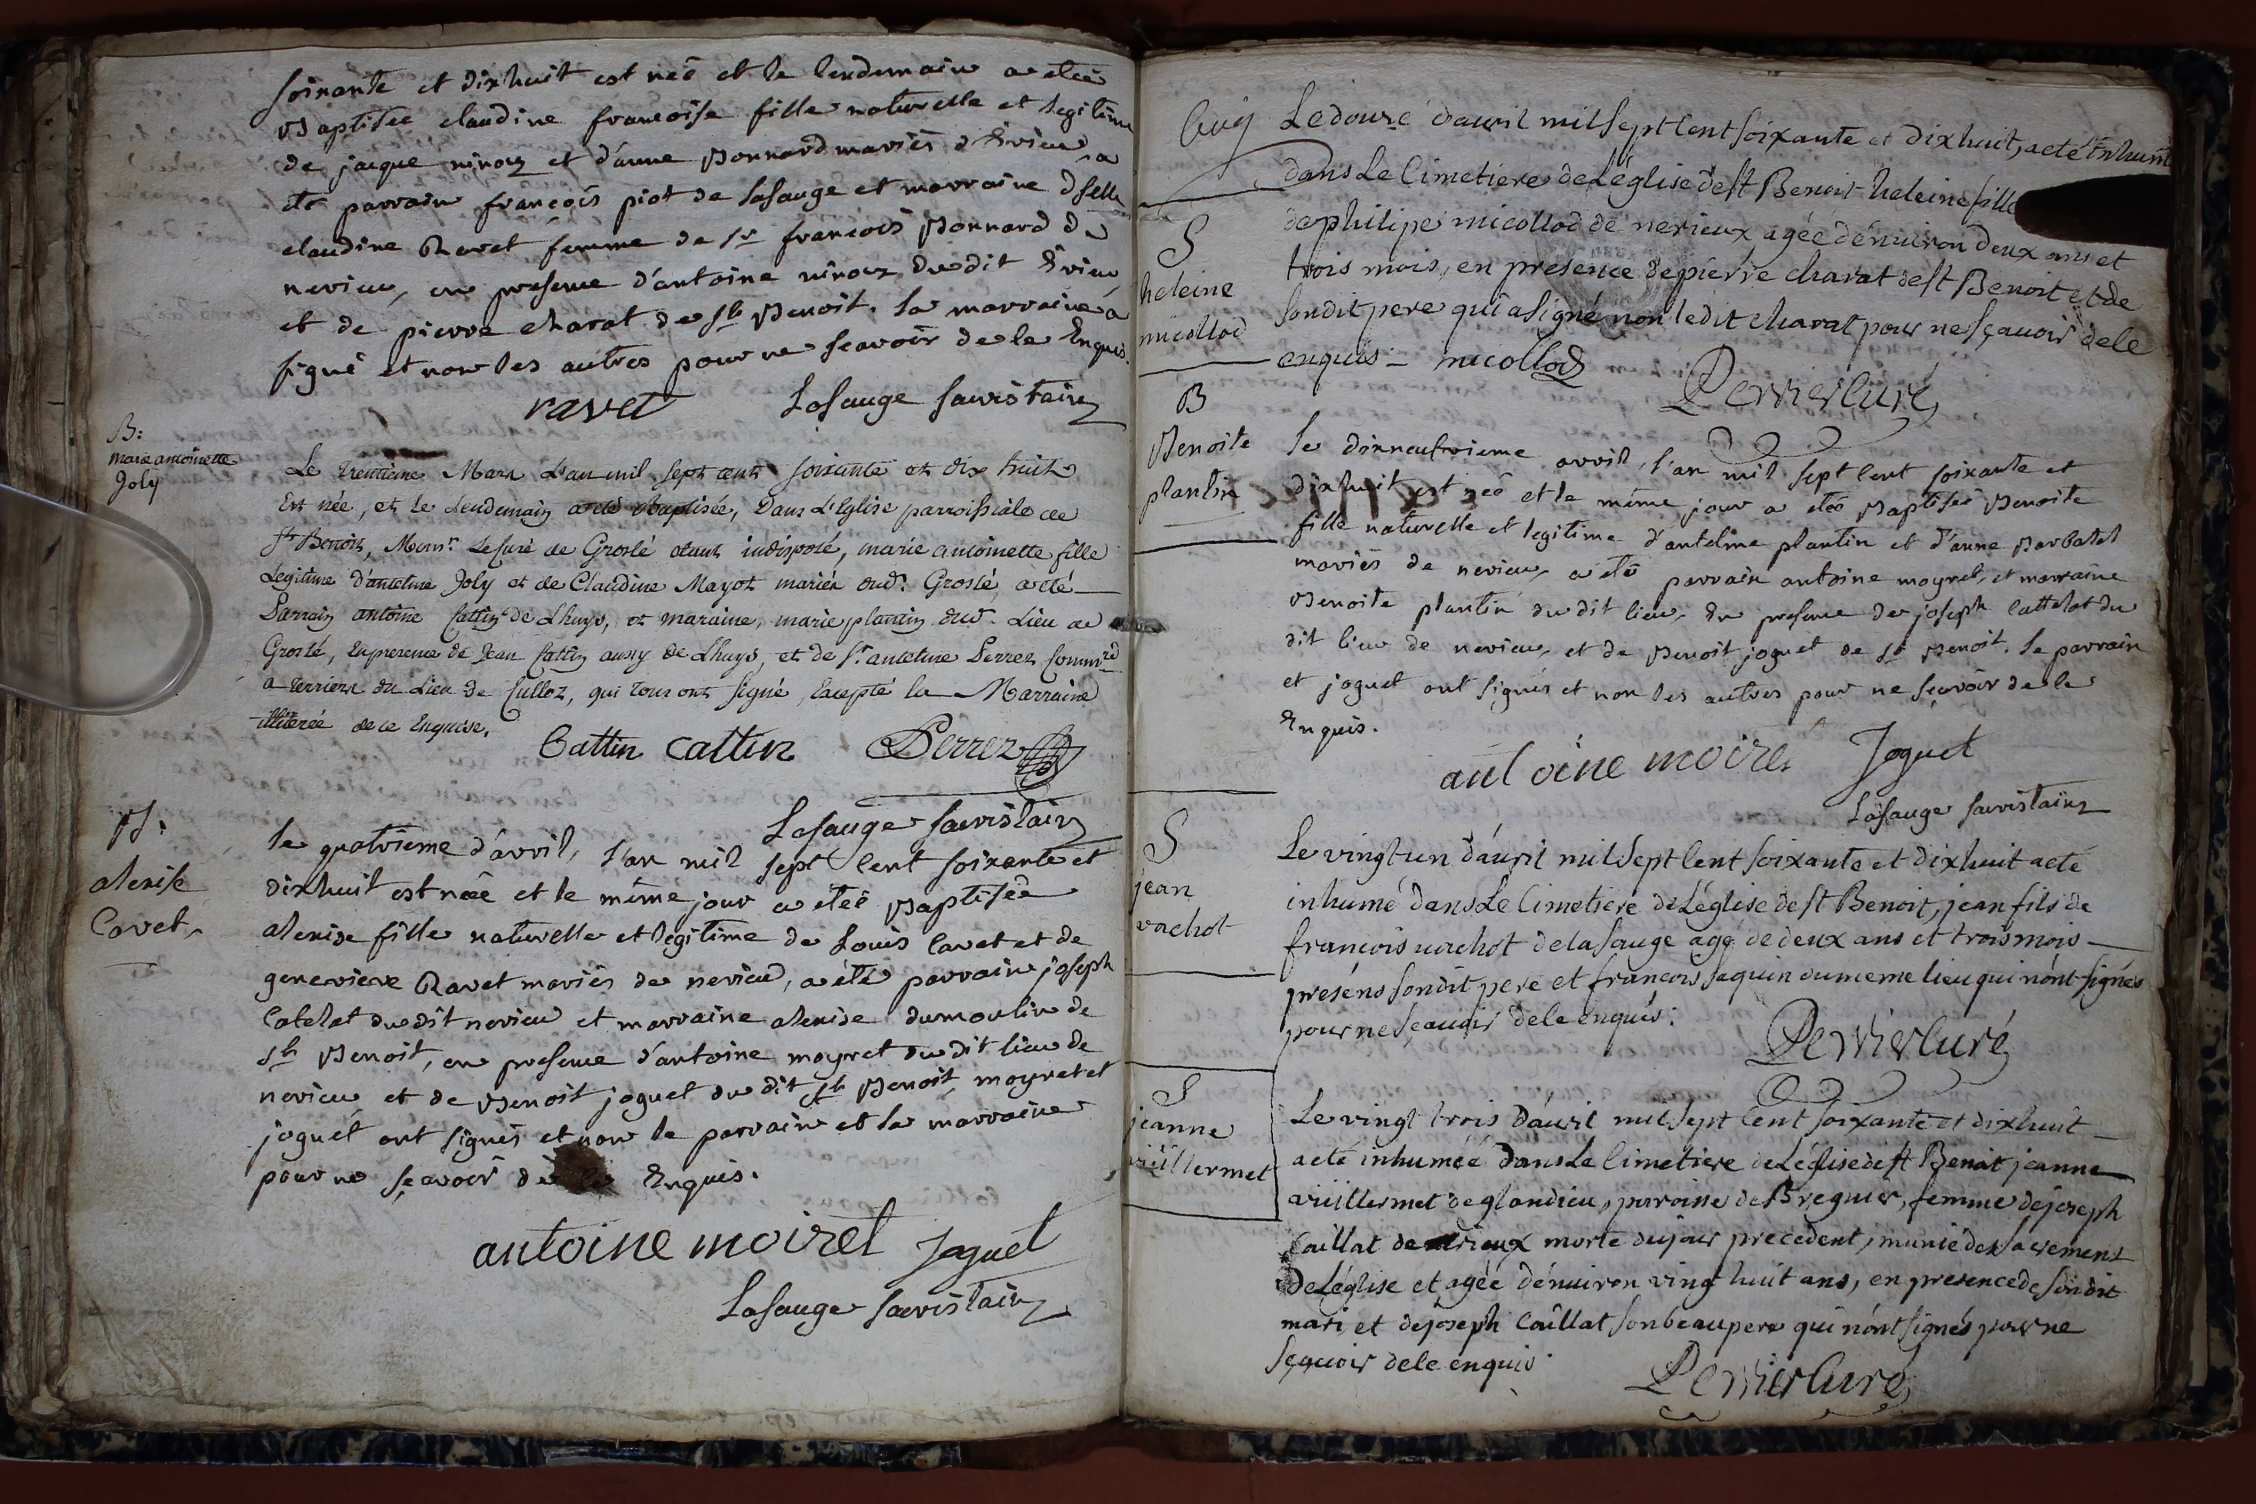 soixante et dixhuit est neé et le lendemain a etee
Baptisee claudine francoise fille naturelle et legitime
de jacque et d'anne Bonnard mariés d'Evieu, a
eté parrain francois piot de lasauge et marraine dslle
claudine Ravet femme de sr francois Bonnard de
nevieu, en presence d'antoine du dit Evieu
et de pierre charat de st Benoit. la marraine à
signé et non les autres pour ne scavoir de le Enquis.
ravet Lasauge sacristain
B:
marie antoinette
Joly
Le trentieme Mars L'an mil sept cents soixante et dix huit
Est née, et le Lendemain a eté Baptisée, Dans L'Eglise parroissiale de
st Benoit, Monsr. Le Curé de Groslé etant indisposé, marie antoinette fille
Legitime d'antelme Joly et de Claudine Mayot mariés dud. Groslé, a eté
Parrain antoine Cattin de Lhuys, et maraine, marie plantin dud. Lieu de
Groslé, En presence de Jean Cattin aussy de Lhuys, et de sr. antelme Perrez Commre
a terrier du Lieu de Culloz, qui tous ont signé, Excepté la Marraine
illiterée de ce Enquise.
Cattin Cattin Perrez
Lasauge sacristain
B:
alexise
Cavet
le quatrieme d'avril, l'an mil sept cent soixante et
dixhuit est neé et le même jour a etéé Baptisée
alexise fille naturelle et legitime de Louis Cavet et de
genevieve Ravet mariés de nevieu, a eté parrain joseph
Catelat du dit nevieu et marraine alexise dumoulin de
st Benoit, en presence d'antoine moyret du dit lieu de
nevieu et de Benoit joguet du dit st Benoit, moyret et
joguet ont signés et non le parrain et la marraine
pour ne sçavoir de le Enquis.
antoine moirel Joguet
Lasauge sacristain
Le douze d'avril mil sept Cent soixante et dixhuit, a eté Enhumé
dans Le Cimetiere de L'église de st Benoit heleine fille
de philipe micollod de nerieux agée d'énviron deux ans et
trois mois, en presence de pierre charat de st Benoit et de
sondit pere qui a signé non ledit charat pour ne sçavoir de le
enquis - micollod
Perrier Curé
S
heleine
micollod
B
Benoite
plantin
le dixneufvieme avril, l'an mil sept cent soixante et
dixhuit est neé et le même jour a etéé Baptiseé Benoite
fille naturelle et legitime d'antelme plantin et d'anne Barbatel
mariés de nevieu, a eté parrain antoine moyret, et marraine
Benoite plantin du dit lieu, En presence de joseph Cattelat du
dit lieu de nevieu, et de Benoit joguet de st Benoit. le parrain
et joguet ont signés et non les autres pour ne sçavoir de le
Enquis.
antoine moirel Joguet
Lasauge sacristain
S
jean
vachot
Le vingt un d'avril mil sept Cent soixante et dixhuit a eté
inhumé dans Le Cimetiere de L'église de st Benoit, jean fils de
francois vachot de la sauge agé de deux ans et trois mois
présens sondit pere et francois saquin du meme lieu qui n'ont signés
pour ne sçavoir de le enquis:
Perrier Curé
S
jeanne
vüillermet
Le vingt trois d'avril mil sept Cent soixante et dixhuit
a eté inhumée dans Le Cimetiere de L'église de st Benoit jeanne
vüillermet de glandieu, paroisse de Bregnier, femme de joseph
Caillat de morte du jour precedent, munie des sacremens
de L'église et agéé d'énviron vingt huit ans, en presence de sondit
mari et de joseph Caillat son beaupere qui n'ont signés pour ne
sçavoir de le enquis.
Perrier Curé